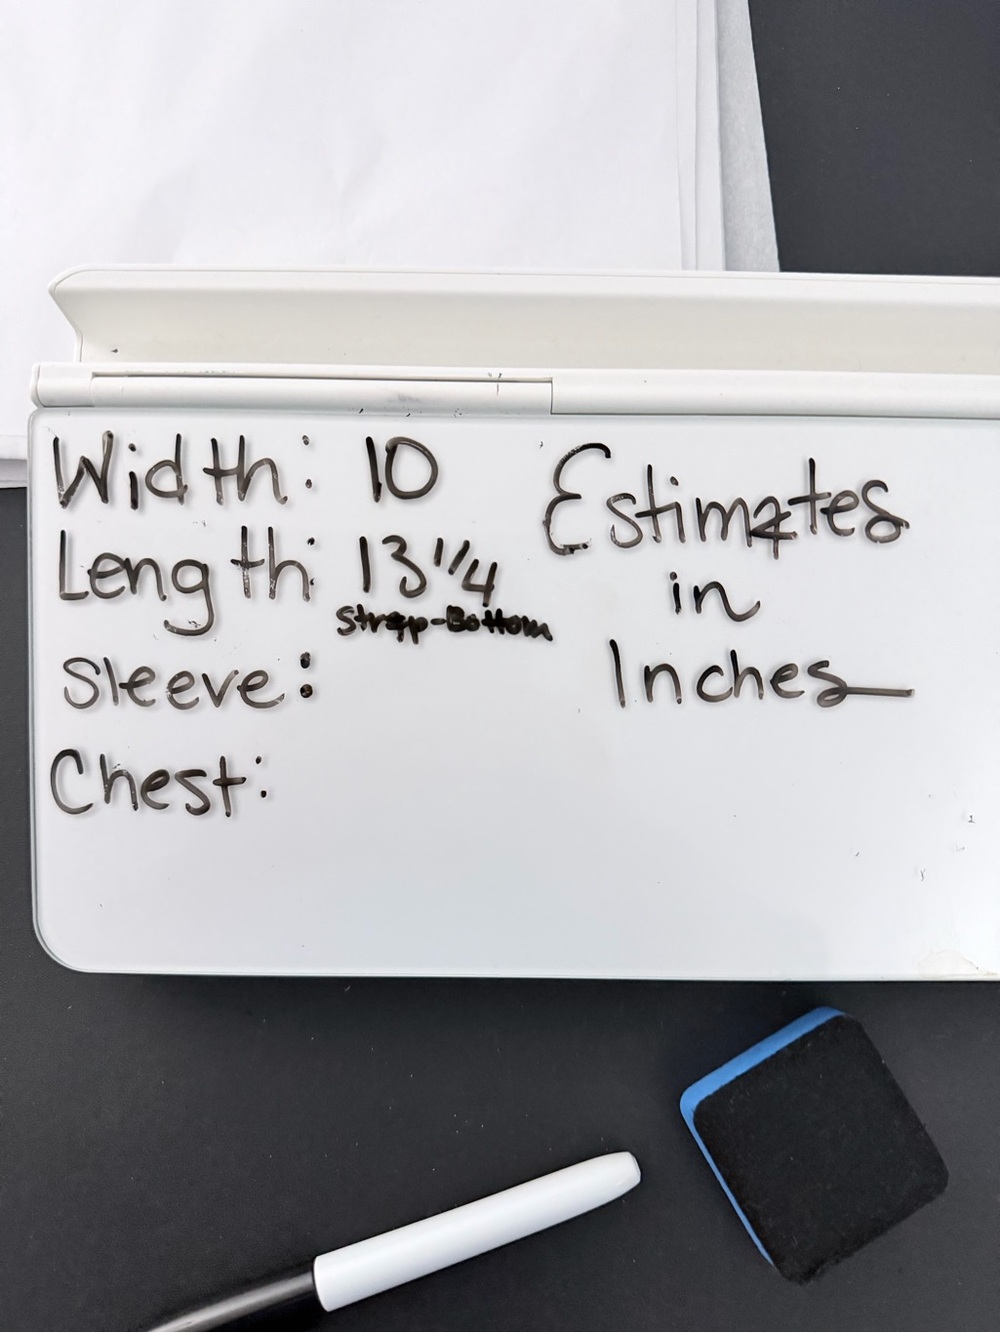 Width: 10
Length: 13 1/4
Strap-Bottom
Sleeve:
Chest:
Estimates
in
Inches